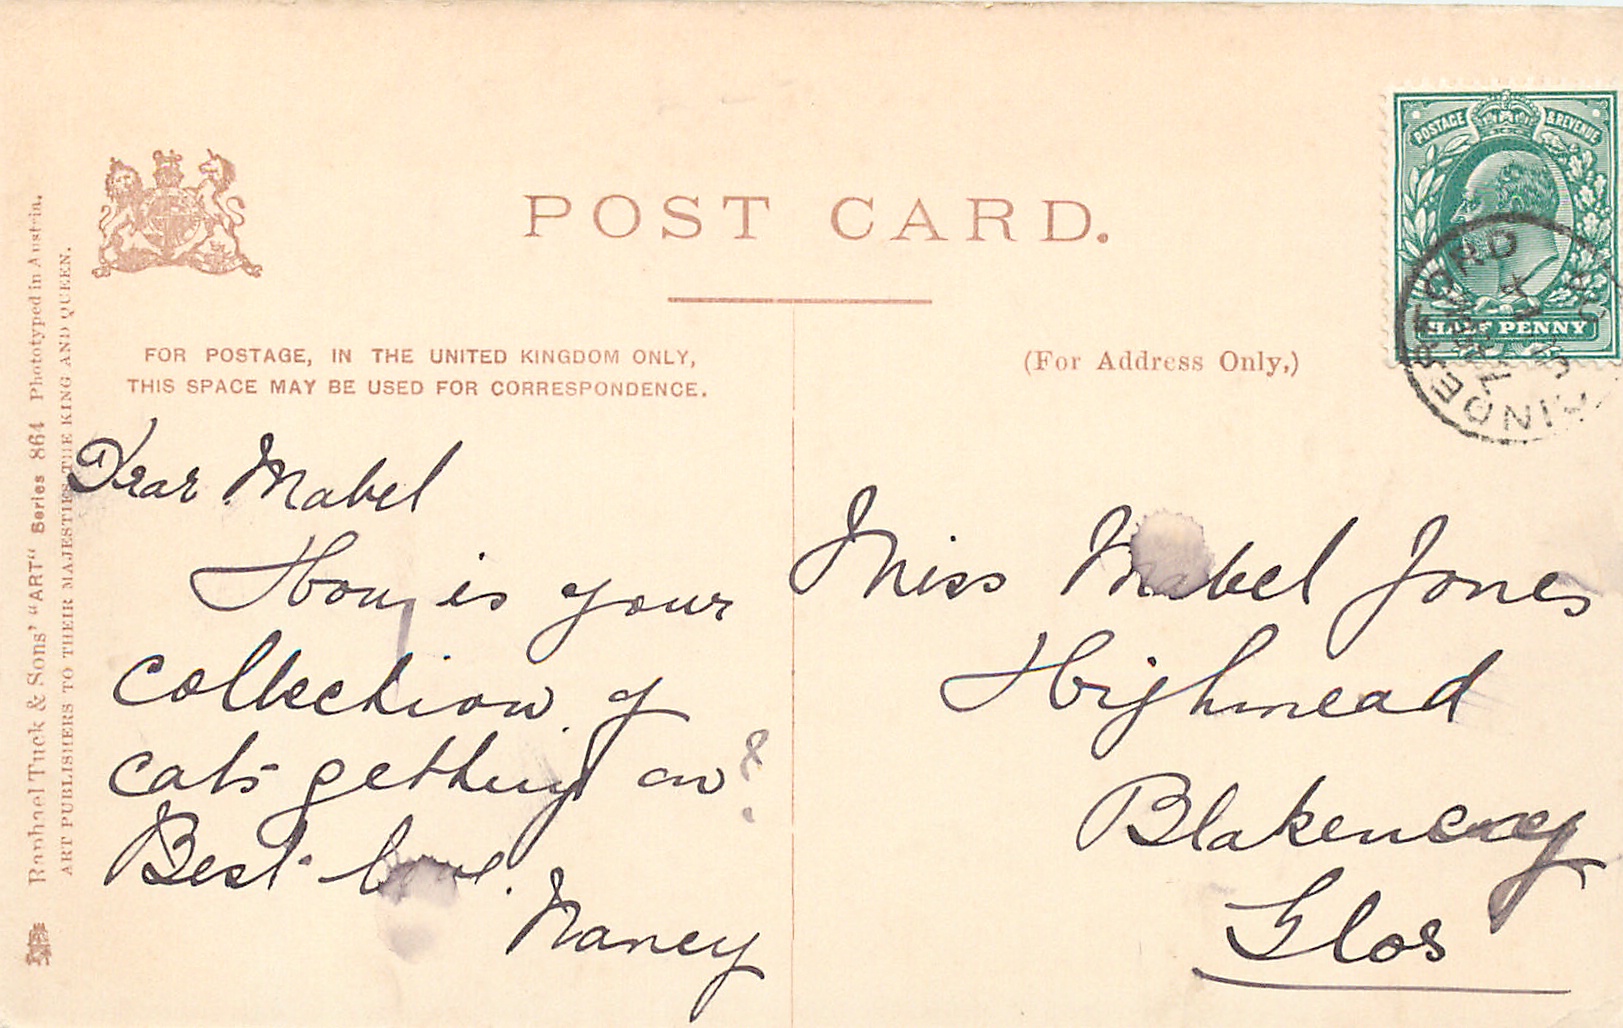 POST CARD.
POSTAGE & REVENUE
HALF PENNY
FOR POSTAGE, IN THE UNITED KINGDOM ONLY,
THIS SPACE MAY BE USED FOR CORRESPONDENCE.
(For Address Only,)
Dear Mabel
How is your
collection of
cats getting on?
Best love.
Nancy
Miss Mabel Jones
Highmead
Blakeney
Glos
Raphael Tuck & Sons' "ART" Series 864 Phototyped in Austria.
ART PUBLISHERS TO THEIR MAJESTIES THE KING AND QUEEN.